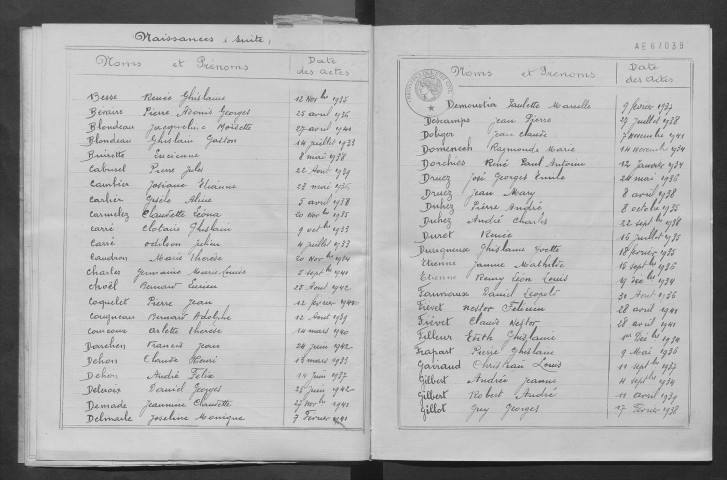 Naissances (suite)
Noms et Prénoms Date des actes
Besse Renée Ghislaine 12 Nov bre 1935
Béraire Pierre Adonis Georges 25 avril 1936
Blondeau Jacqueline Moisette 27 avril 1941
Blondeau Ghislain Gaston 14 juillet 1933
Buirette Lucienne 8 mai 1938
Cabusel Pierre Jules 22 Août 1939
Cambier Josiane Etienne 23 mai 1936
Carlier Gisèle Aline 5 avril 1938
Carmelez Claudette Léona 20 nov bre 1935
Carré Clotaire Ghislain 9 oct bre 1933
Carré Odilon Julien 4 juillet 1933
Caudron Marie Thérèse 20 Nov bre 1934
Charles Germaine Marie-Louise 5 sept bre 1941
Choël Bernard Lucien 28 Août 1942
Coquelet Pierre Jean 12 février 1942
Cougneau Bernard Adolphe 12 Août 1939
Couvoux Arlette Thérèse 14 mars 1940
Darchen Francis Jean 24 juin 1942
Dehon Claude Henri 18 mars 1933
Dehon André Félix 14 juin 1937
Delvoix Daniel Georges 25 juin 1942
Demade Jeannine Claudette 27 nov bre 1941
Delmarle Joseline Monique 7 Février 1941
AE67038
Noms et Prénoms Date des actes
Demoustier Paulette Marcelle 9 février 1937
Descamps Jean Pierre 27 juillet 1938
Doliger Jean Claude 7 Novembre 1941
Domenech Raymonde Marie 14 novembre 1934
Dorchies René Paul Antoine 12 janvier 1934
Druez José Georges Emile 24 mai 1936
Druez Jean Mary 8 avril 1938
Duhez Pierre André 8 octobre 1935
Duhez André Charles 22 sept bre 1938
Duret Renée 16 juillet 1935
Durigneux Ghislaine Yvette 18 février 1935
Etienne Jeanne Mathilde 16 sept bre 1936
Etienne Remy Léon Louis 19 déc bre 1934
Farineaux Daniel Léopold 30 Août 1936
Frévet Nestor Félicien 28 avril 1941
Frévet Claude Nestor 28 avril 1941
Filleur Edith Ghislaine 1er Déc bre 1934
Frapart Pierre Ghislaine 9 Mai 1936
Garraud Christian Louis 11 sept bre 1937
Gilbert Andrée Jeanne 4 sept bre 1934
Gilbert Robert André 11 avril 1939
Gillot Guy Georges 17 Février 1938